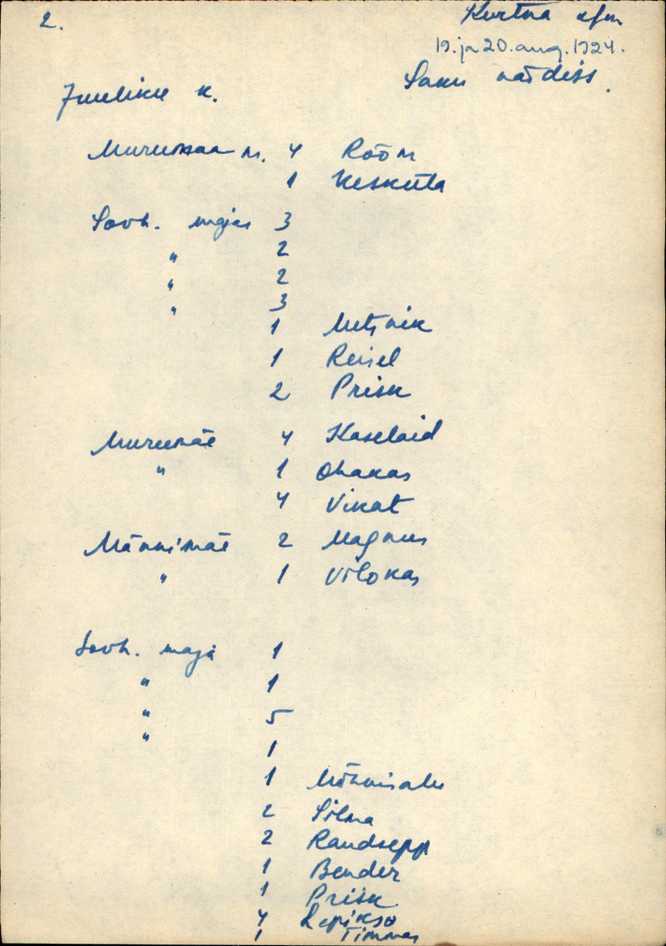 2.
Kurtna
19. ja 20. aug. 1924.
Saku näidiss.
Juuliku k.
Murumaa m. 4 Rööm
1 Keskküla
Sovh. majas 3
" 2
" 2
" 3
1 Metsnik
1 Reisel
2 Prisk
Murumäe 4 Haselaid
" 1 Ohakas
4 Vikat
Männimäe 2 Magnus
" 1 Vilokas
Sovh. maja 1
" 1
" 5
" 1
1
2 Silma
2 Raudsepp
1 Bender
1 Prisk
4 Lepikso
1 Timmas